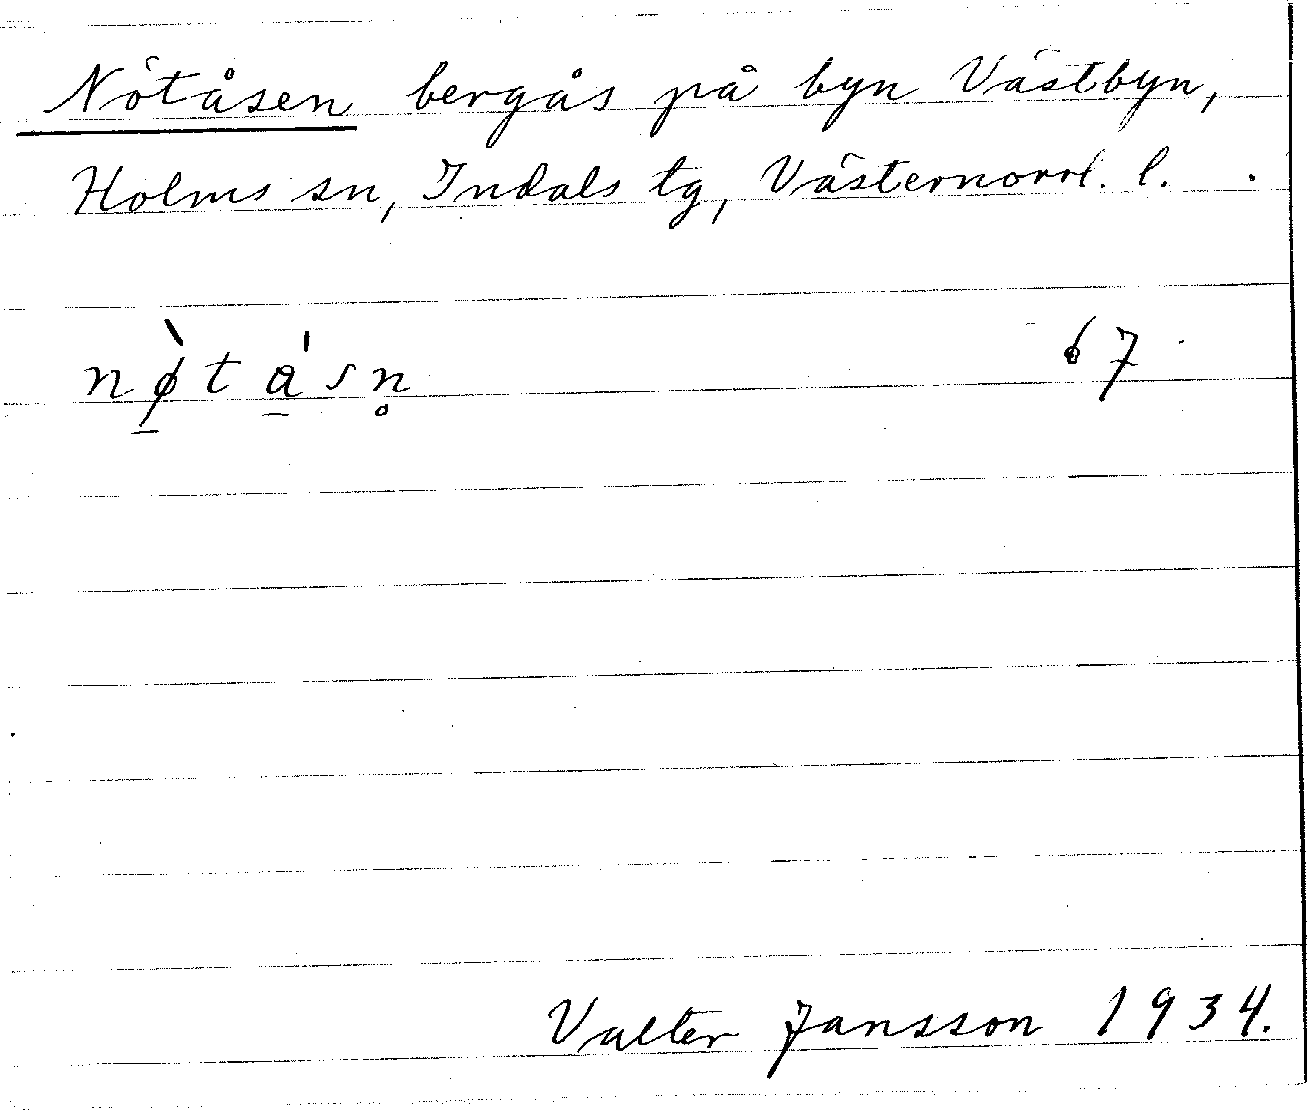 Nötåsen bergås på byn Västbyn,
Holms sn, Indals tg, Västernorrl. l.
nø̱̀ta̱'sn̥ 67
Valter Jansson 1934.